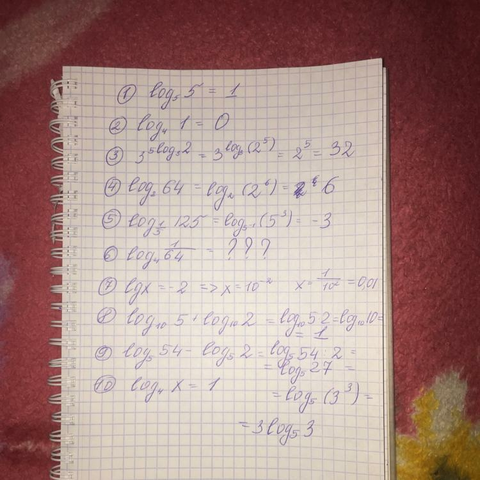 ① log₅ 5 = 1
② log₄ 1 = 0
③ 3^(5log₃2) = 3^(log₃(2⁵)) = 2⁵ = 32
④ log₂ 64 = log₂ (2⁶) = 6
⑤ log_(1/5) 125 = log₅₋₁ (5³) = -3
⑥ log₄ 1/64 = ???
⑦ lgx = -2 => x = 10⁻² x = 1/10² = 0,01
8 log₁₀ 5 + log₁₀ 2 = log₁₀ 5 2 = log₁₀ 10 =
= 1
9 log₅ 54 - log₅ 2 = log₅ 54 2 =
= log₅ 27 =
⑩ log₄ x = 1 = log₅ (3³) =
= 3log₅ 3